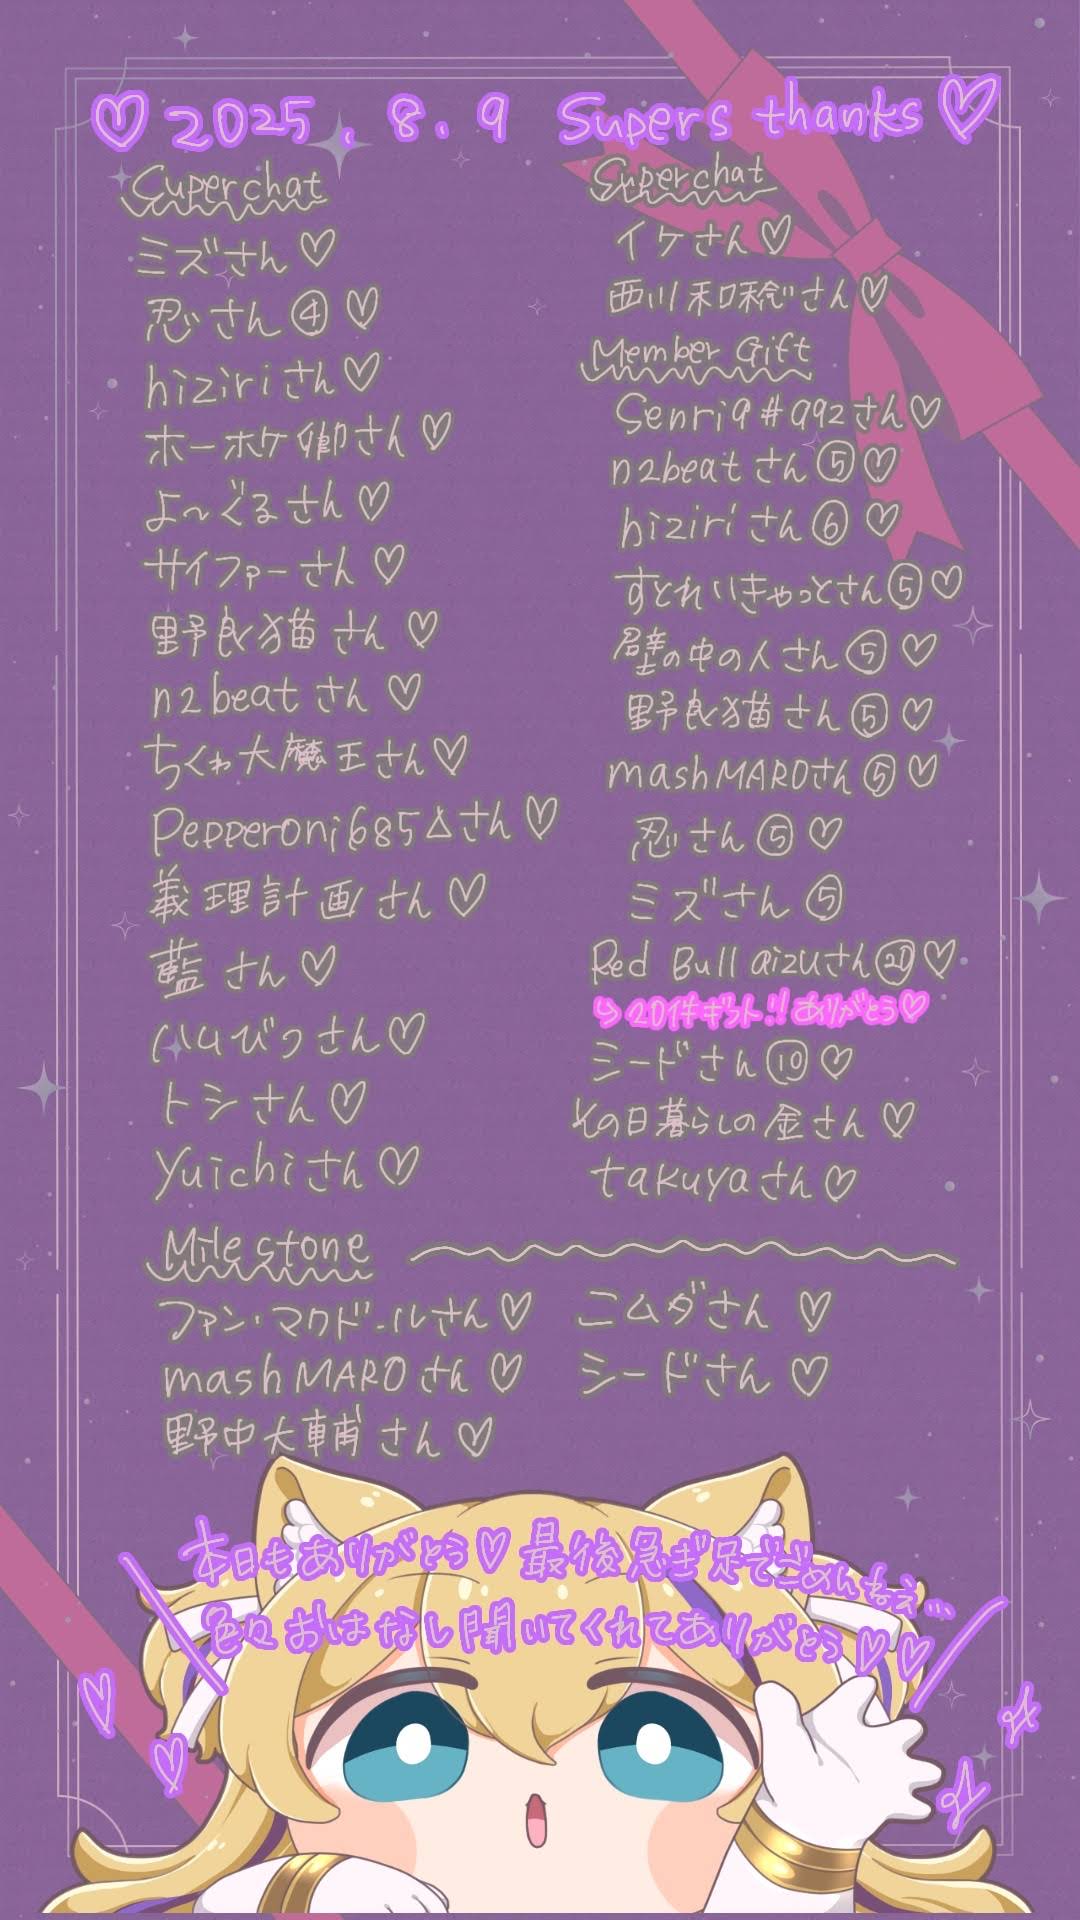 ♡2025.8.9 Supers thanks♡
Superchat
ミズさん♡
忍さん④♡
hiziriさん♡
ホーホケ卿さん♡
よ〜ぐるさん♡
サイファーさん♡
野良猫さん♡
n2beatさん♡
ちくわ大魔王さん♡
Pepperoni685△さん♡
義理計画さん♡
藍さん♡
ハムびつさん♡
トシさん♡
Yuichiさん♡
Superchat
イケさん♡
西川和稔さん♡
Member Gift
Senri9#992さん♡
n2beatさん⑤♡
hiziriさん⑥♡
すとれいきゃっとさん⑤♡
壁の中の人さん⑤♡
野良猫さん⑤♡
mashMAROさん⑤♡
忍さん⑤♡
ミズさん⑤
Red Bull aizuさん⑳♡
↳20件ギフト!!ありがとう♡
シードさん⑩♡
その日暮らしの金さん♡
takuyaさん♡
Milestone
ファン・マクドールさん♡
mashMAROさん♡
野中大輔さん♡
ニムダさん♡
シードさん♡
本日もありがとう♡最後急ぎ足でごめんねぇ…
色々おはなし聞いてくれてありがとう♡♡